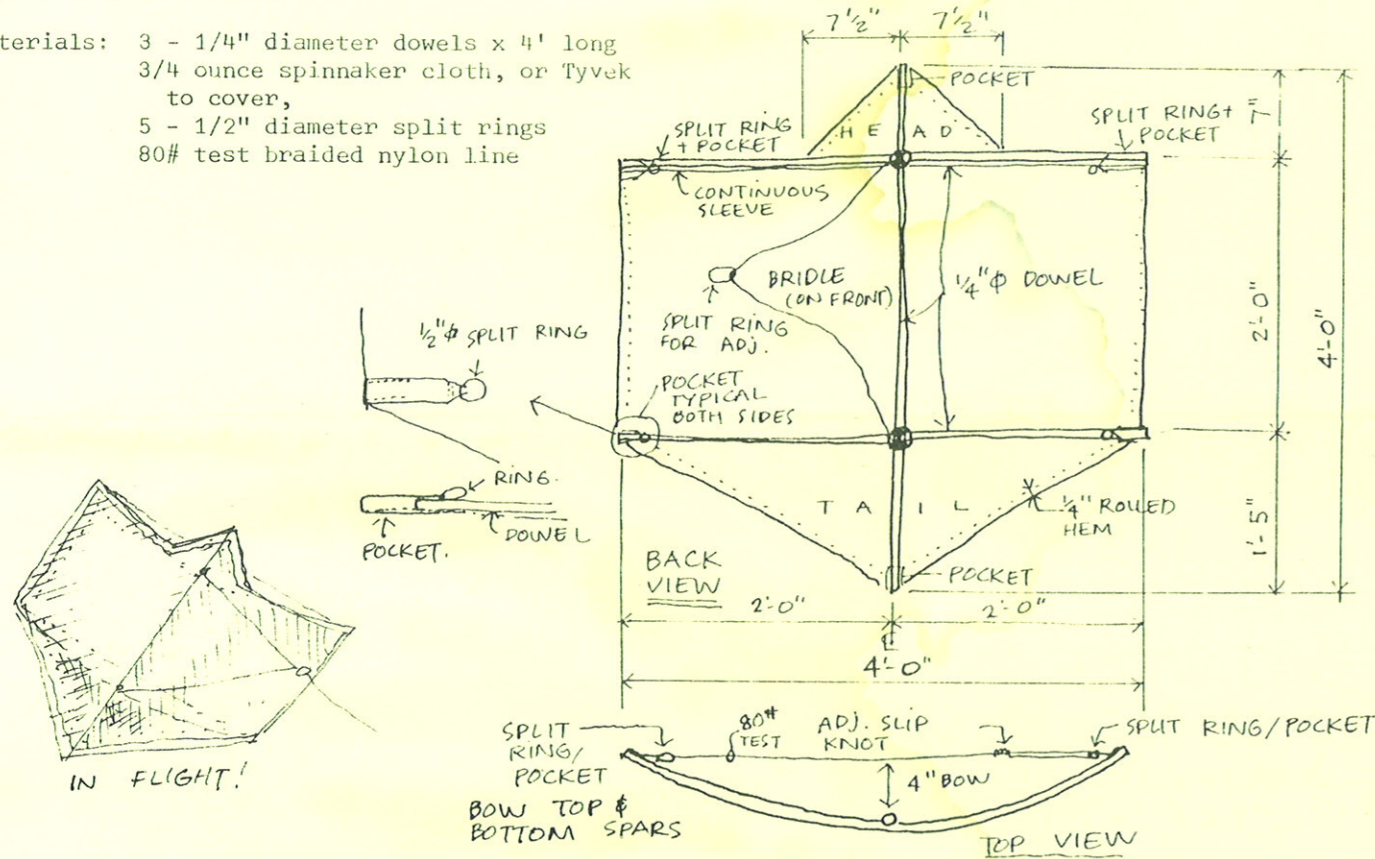 terials: 3 - 1/4" diameter dowels x 4' long
3/4 ounce spinnaker cloth, or Tyvek
to cover,
5 - 1/2" diameter split rings
80# test braided nylon line
7½" 7½"
POCKET
HEAD
7"
SPLIT RING
+ POCKET
SPLIT RING +
POCKET
CONTINUOUS
SLEEVE
BRIDLE
(ON FRONT)
¼"⌀ DOWEL
SPLIT RING
FOR ADJ.
2'-0"
4'-0"
½"⌀ SPLIT RING
POCKET
TYPICAL
BOTH SIDES
RING.
DOWEL
POCKET.
TAIL
¼" ROLLED
HEM
1'-5"
POCKET
BACK
VIEW
2'-0" 2'-0"
℄
4'-0"
IN FLIGHT!
SPLIT
RING/
POCKET
80#
TEST
ADJ. SLIP
KNOT
SPLIT RING/POCKET
4" BOW
BOW TOP &
BOTTOM SPARS
TOP VIEW